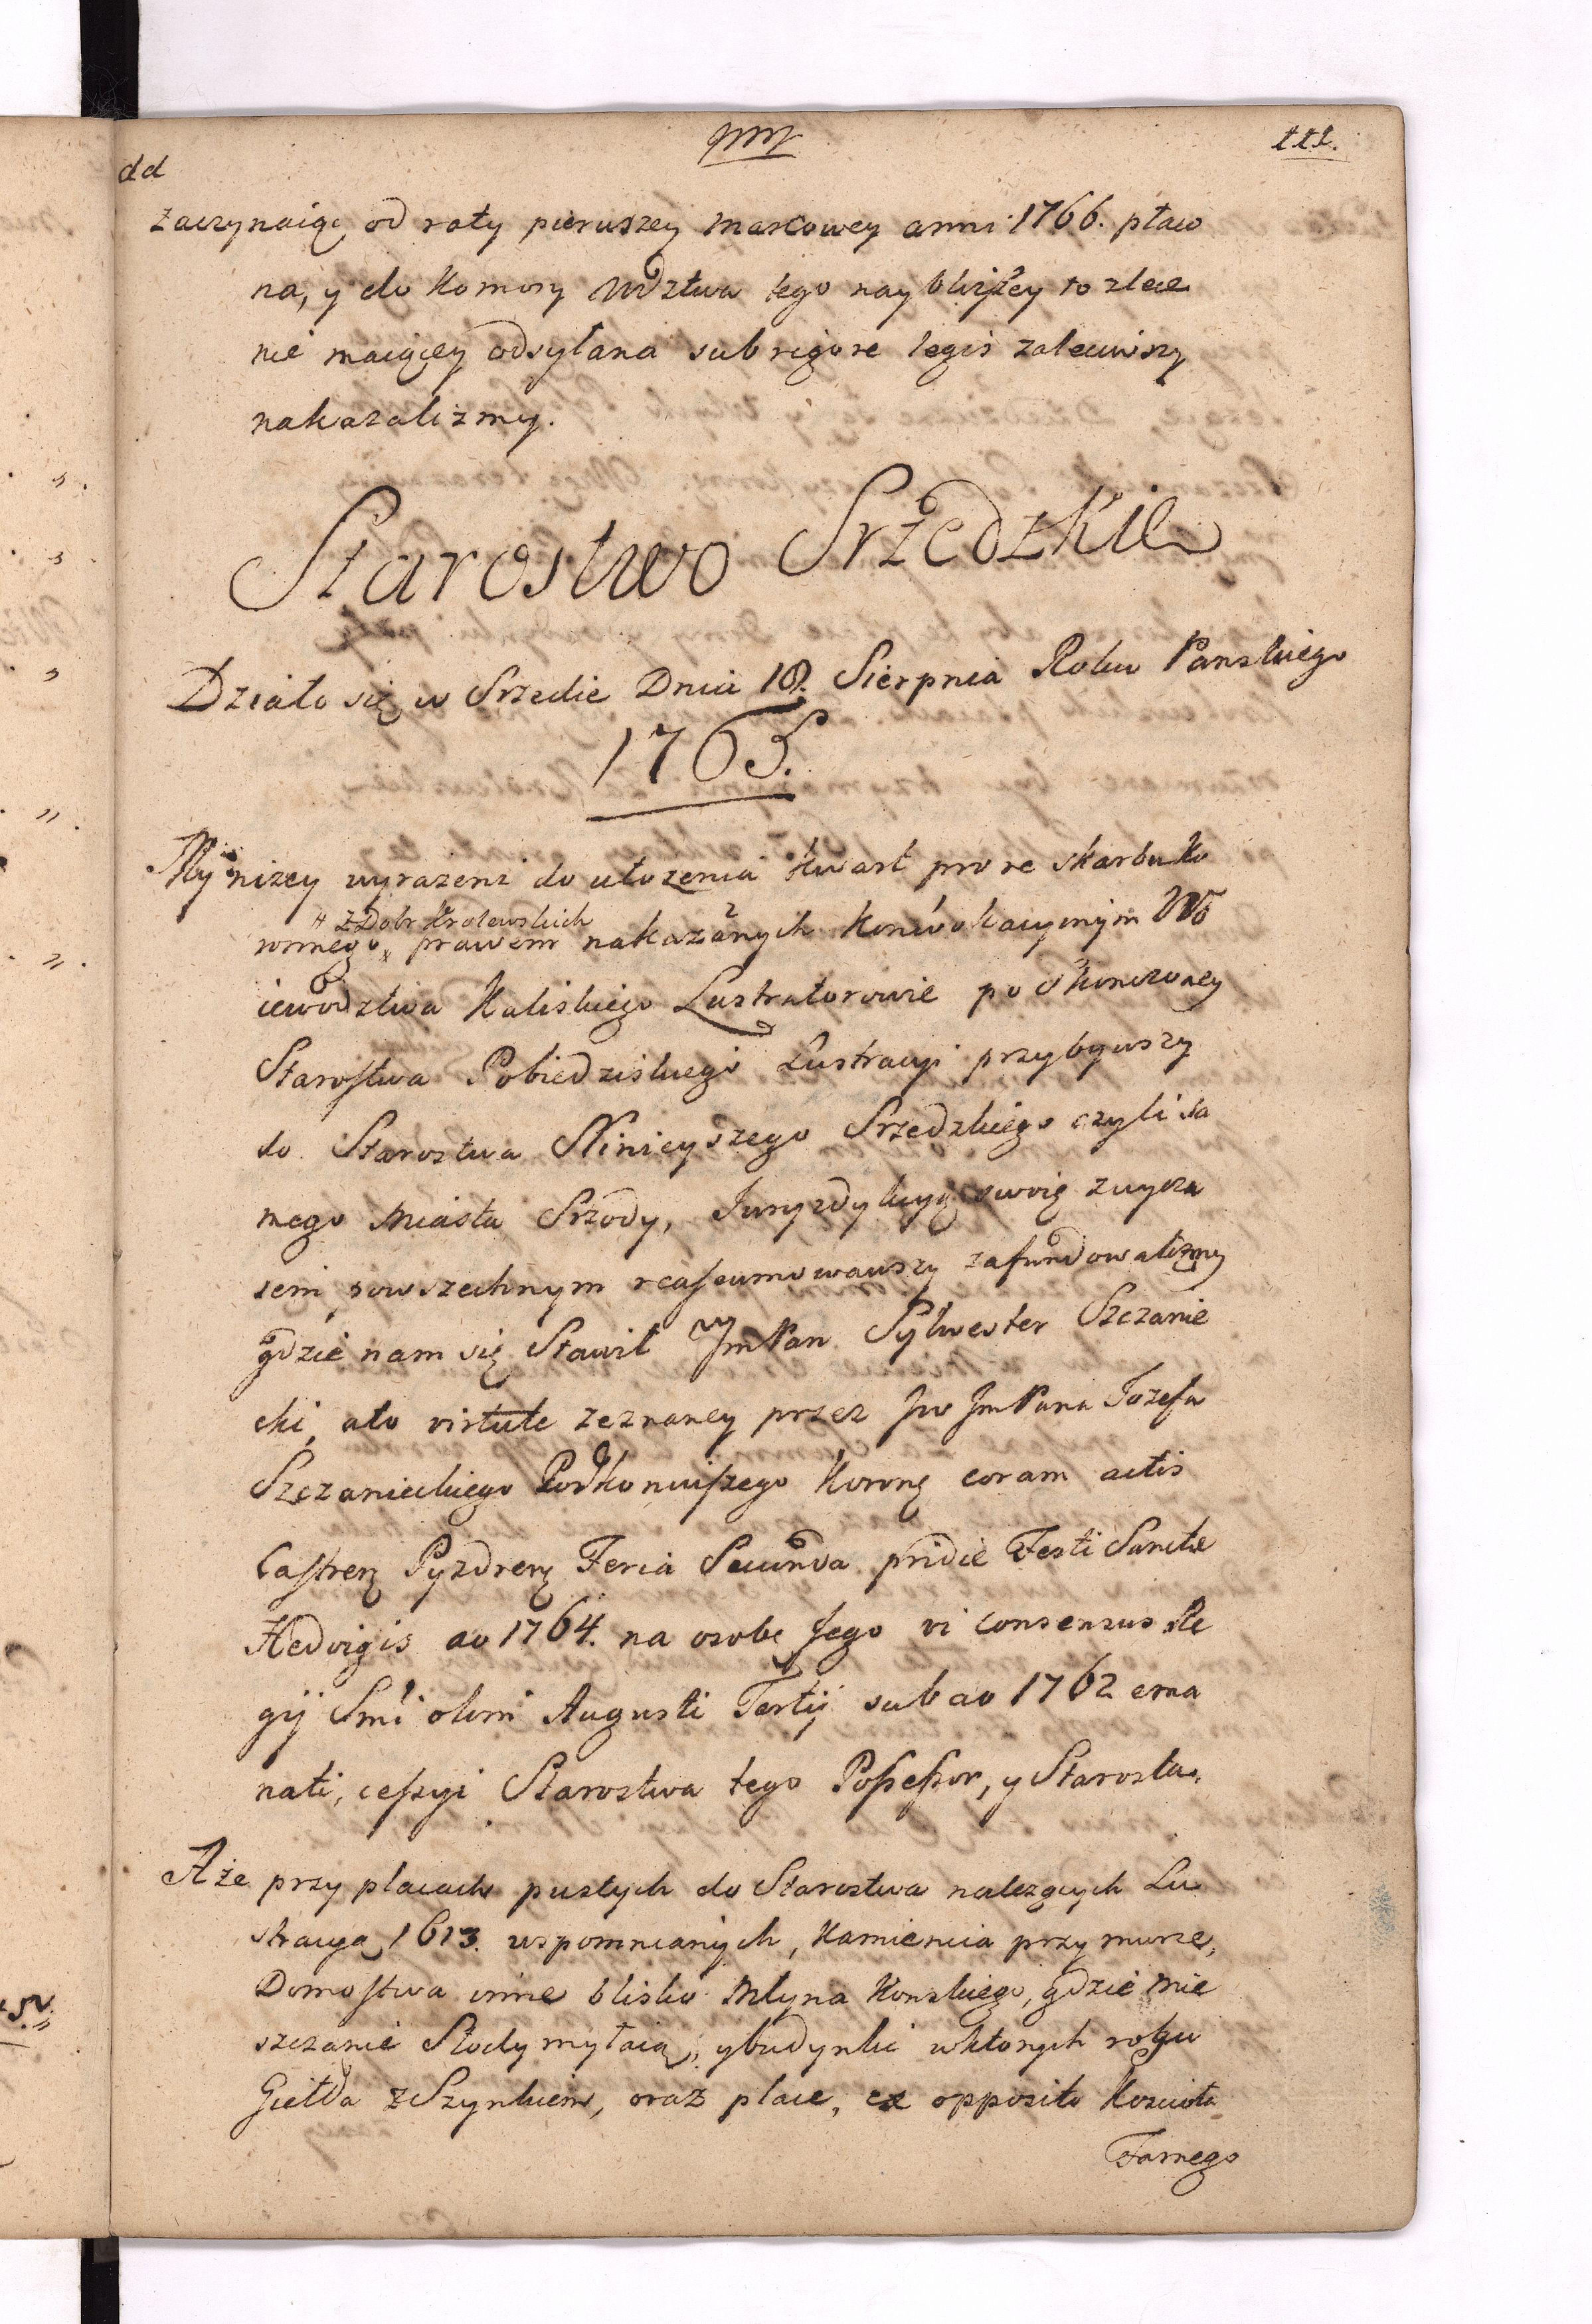 ttt.
dd
zaczynaiąc od raty pierwszey marcowey anni 1766. płaco
na, y do Komory Wdztwa tego naybliżey to zlece
nie maiącey odsyłana sub rigore legis zaleciwszy
nakazalizmy.
Starostwo Srzedzkie
Działo się w Srzedie Dnia 18. Sierpnia Roku Panskiego
1765.
My niżey wyrażeni do ułożenia kwart pro re skarbu Ko
ronnego, prawem nakazanych Konwokacyinym Wo
z Dobr Krolewskich
iewodztwa Kaliskiego Lustratorowie po skonczoney
Starostwa Pobiedziskiego Lustracyi przybywszy
do Starostwa Ninieyszego Srzedzkiego czyli sa
mego Miasta Srzody, Juryzdykcyą swoię zwycza
iem powszechnym reassumowawszy zafundowalizmy
gdzie nam się Stawił Jm Pan Sylwester Szczanie
cki, ato virtute zeznaney przez Jw Jm Pana Jozefa
Szczanieckiego Podkoniuszego Koronę coram actis
Castrenę Pyzdrenę Feria Secunda pridie Festi Sanctæ
Hedvigis ao 1764. na osobę Jego vi consensus Re
gij Smi olim Augusti Tertij sub ao 1762 ema
nati, cessyi Starostwa tego Possessor, y Starosta.
A że przy placach pustych do Starostwa należących Lu
stracyą 1613. wspomnianych, Kamienica przy murze,
Domostwa inne blisko Młyna Konskiego, gdzie mie
szczanie Słody mytaią, y budynki w ktorych rogu
Giełda z Szynkiem, oraz place, ex opposito Kosciola
Farnego